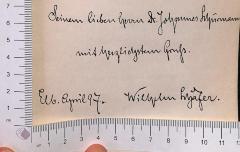 Seinem lieben Herrn Dr. Johannes Schürmann
mit herzlichstem Gruß.
Elb. April 97. Wilhelm Schäfer.